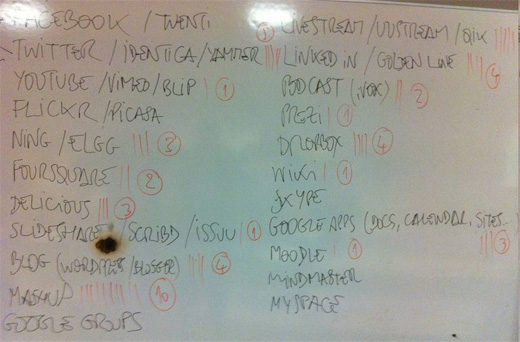 FACEBOOK / TWENTI
TWITTER / IDENTICA / YAMMER
YOUTUBE / VIMEO / BLIP 1
FLICKR / PICASA
NING / ELGG 3
FOURSQUARE 2
DELICIOUS 3
SLIDESHARE / SCRIBD / ISSUU 1
BLOG (WORDPRESS / BLOGGER) 4
MASHUP 10
GOOGLE GROUPS
1 LIVESTREAM / USTREAM / QIK
LINKED IN / GOLDEN LINE 4
PODCAST (IVOX) 2
PREZI 1
DROPBOX 4
WIKI 1
SKYPE
GOOGLE APPS (DOCS, CALENDAR, SITES... 3
MOODLE 1
MINDMASTER
MYSPACE